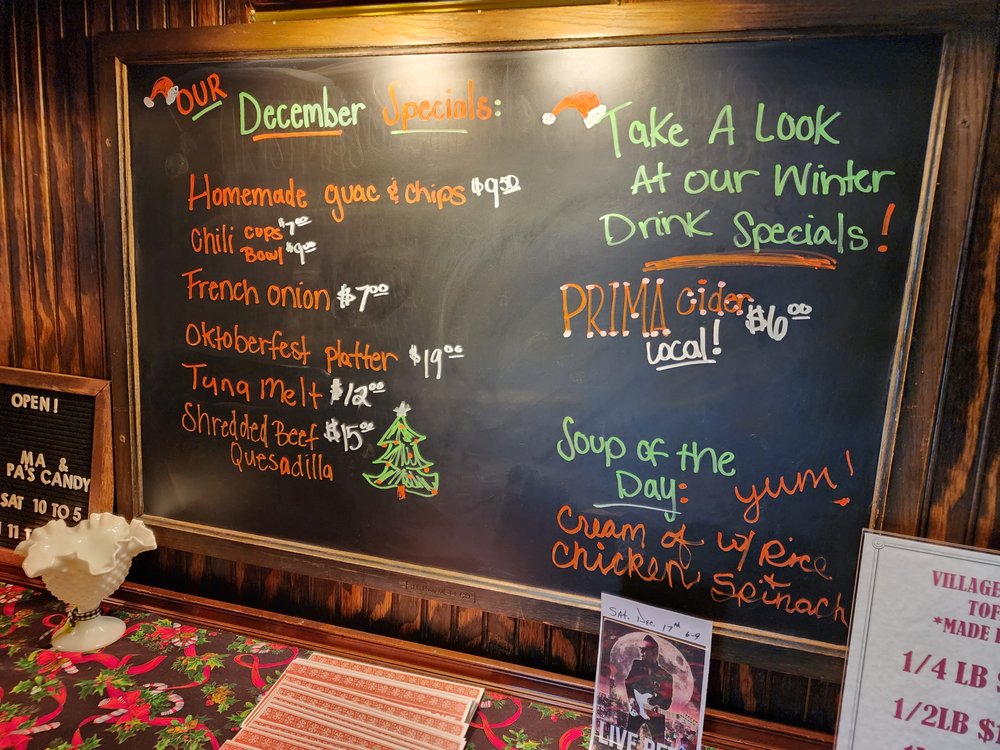 OUR December Specials:
Homemade guac & chips $9.50
Chili cups $7.00
Bowl $9.00
French onion $7.00
Oktoberfest platter $19.00
Tuna Melt $12.00
Shredded Beef $15.00
Quesadilla
Take A Look
At our Winter
Drink Specials!
PRIMA cider $6.00
Local!
Soup of the
Day: yum!
Cream of w/ Rice
Chicken + Spinach
OPEN!
MA &
PA'S CANDY
SAT 10 TO 5
Sat. Dec. 17th 6-9
LIVE
VILLAGE
*MADE
1/4 LB
1/2LB